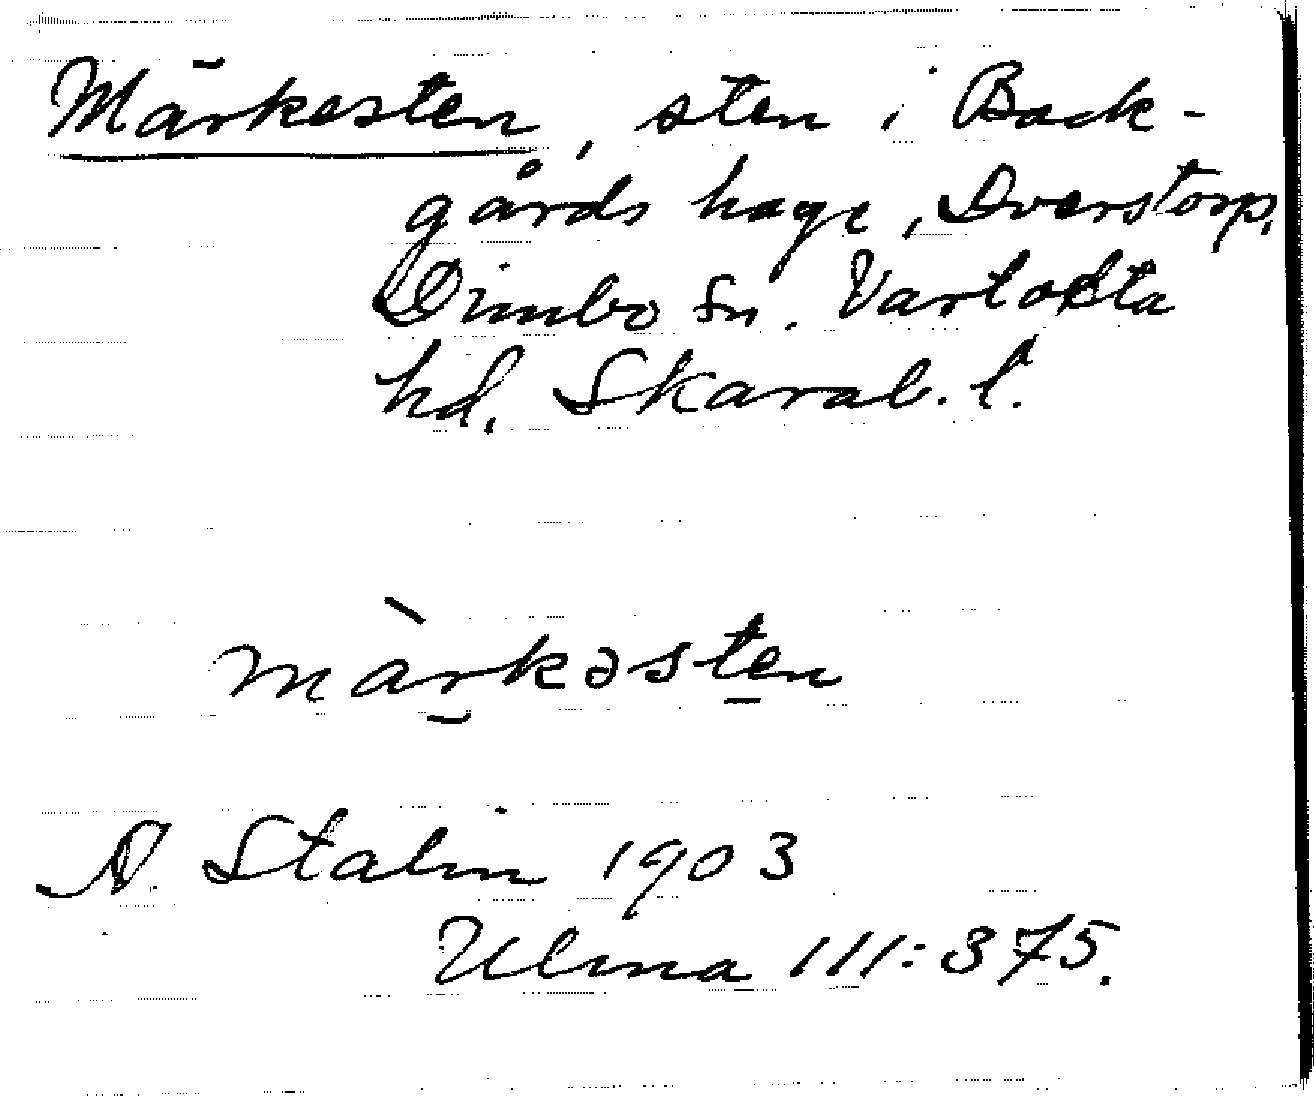 Märkesten, sten i Back-
gårds hage, Dvärstorp,
Dimbo sn. Vartofta
hd. Skarab. l.
màrkəsten
A. Stalin 1903
Ulma 111:375.